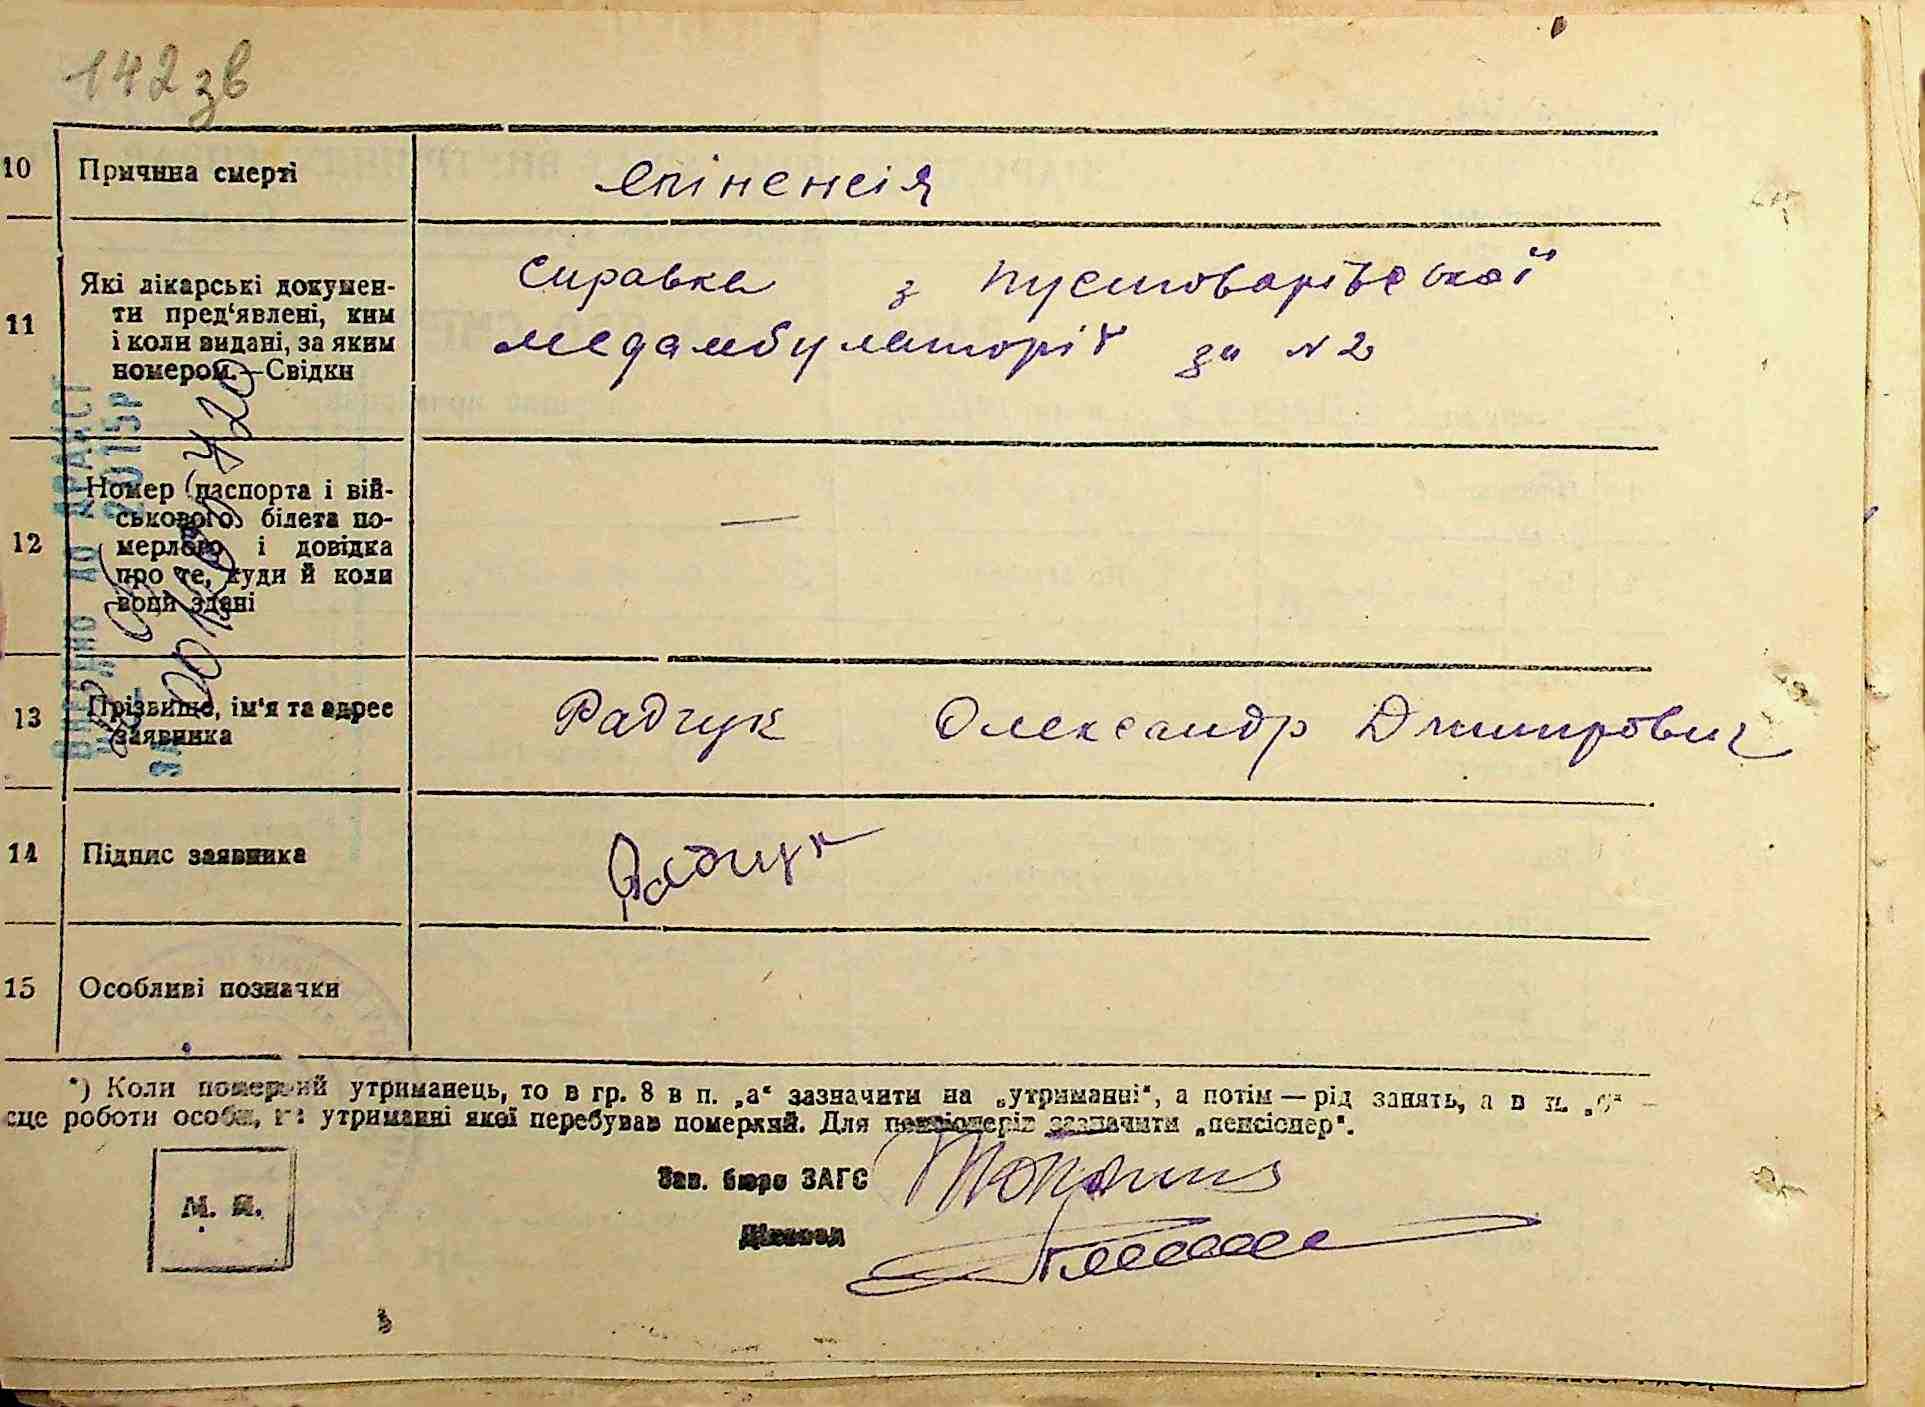 142 зв
10 Причина смерті епіпенсія
11 Які лікарські докумен-
ти пред‘явлені, ким
і коли видані, за яким
номером.—Свідки
Справка з Пустоварівської
медамбулаторії за №2
12 Номер паспорта і вій-
ськового білета по-
мерлого і довідка
про те, куди й коли
вони здані
—
13 Прізвище, ім‘я та адрес
заявника
Радчук Олександр Дмитрович
14 Підпис заявника Радчук
15 Особливі позначки
ДО ДРАЦСГ
2015Р
*) Коли померлий утриманець, то в гр. 8 в п. „а“ зазначити на „утриманні“, а потім — рід занять, а в п. „б“ —
сце роботи особи, на утриманні якої перебував померлий. Для пенсіонерів зазначити „пенсіонер“.
Зав. бюро ЗАГС
М. П.
Діловод